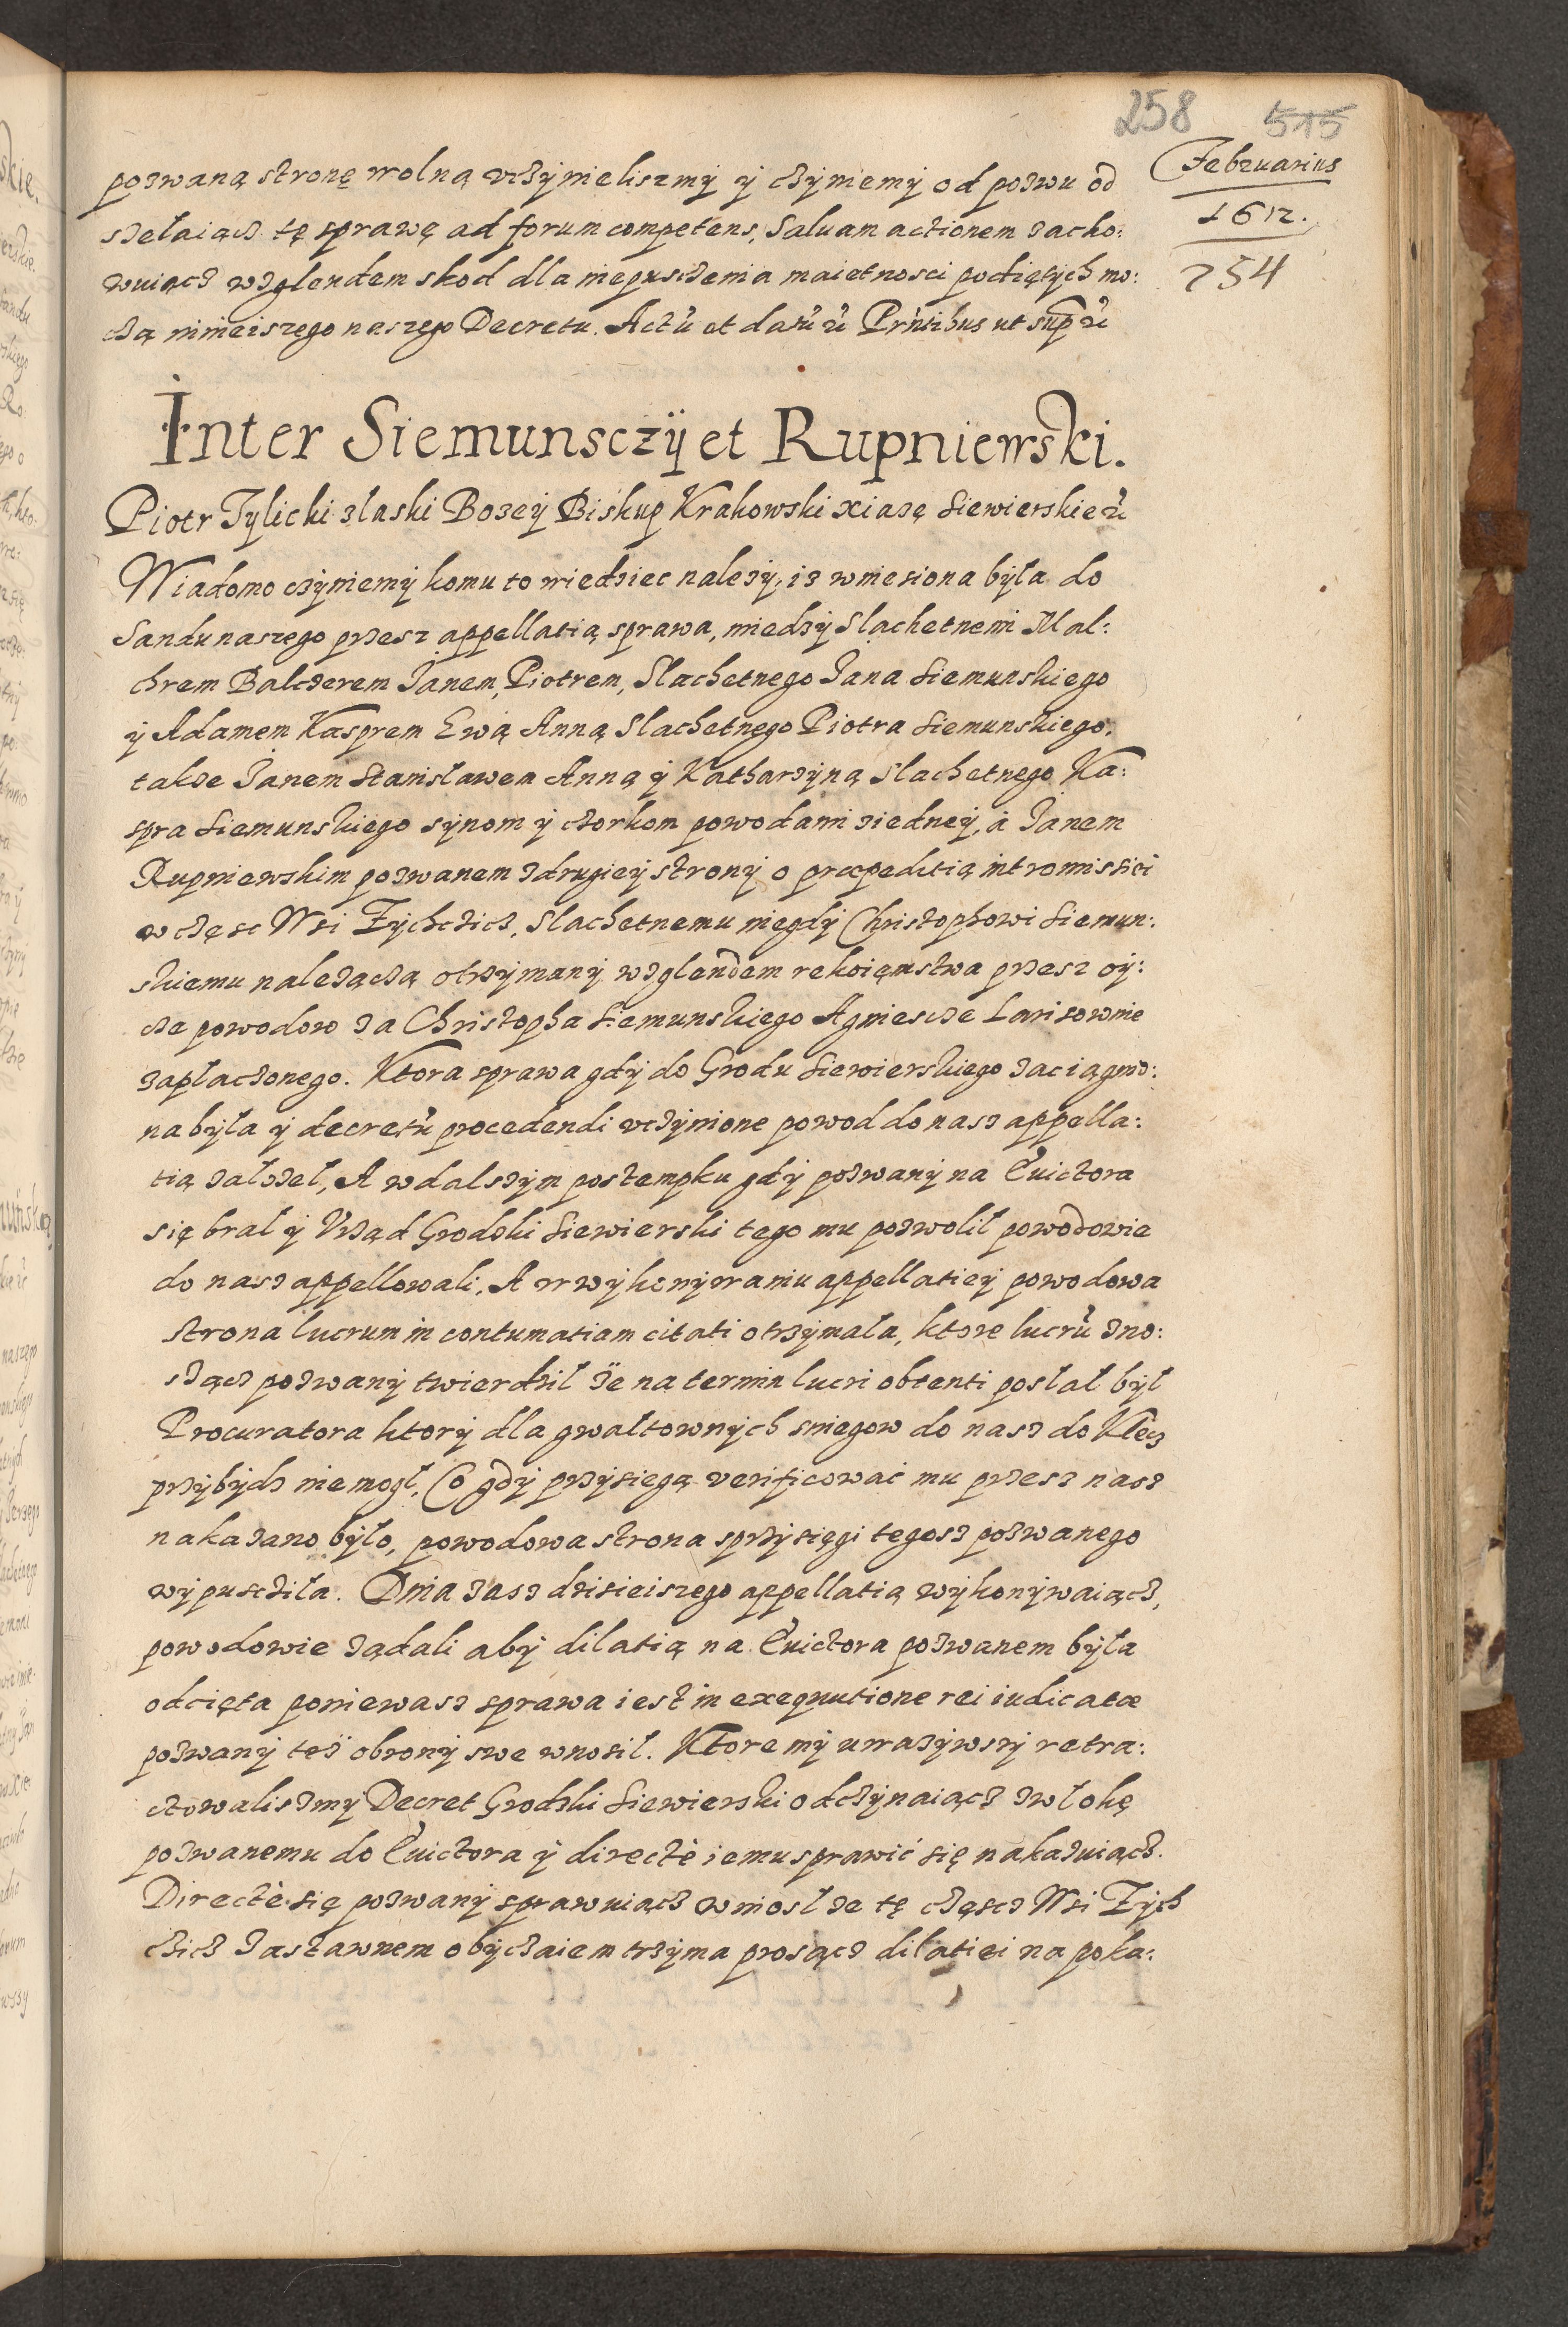 258 515
Februarius
1612.
254
pozwaną stronę wolną uczÿnielismÿ ÿ czÿniemÿ od pozwu od
szełaiącz tę sprawę ad forum competens, Saluam actionem zacho:
wuiącz wzglendem skod dla niepusczenia maietnosci podiętÿch mo:
czą ninieiszego naszego Decretu. Actũ et datũ ut Prńtibus ut sup̃ ut
Inter Siemunsczÿ et Rupniewski.
Piotr Tÿlicki złaski Bozeÿ Biskup Krakowski xiązę Siewierskie ut
Wiadomo czÿniemÿ komu to wiedziec nalezÿ, iz wniesiona bÿła do
Sandu naszego przesz appellatią sprawa, miedzÿ Slachetnemi Mal:
chrem Balczerem Janem, Piotrem, Slachetnego Jana Siemunskiego
ÿ Adamem Kasprem Ewą Anną Slachetnego Piotra Siemunskiego,
takze Janem Stanisławem Anną ÿ Katharzÿną Slachetnego Ka:
spra Siemunskiego sÿnom ÿ czorkom powodami ziedneÿ, a Janem
Rupniewskim pozwanem zdrugieÿ stronÿ o præpeditią intromissiei
w częsc Wsi Zÿchczicz, Slachetnemu niegdÿ Christophowi Siemun:
skiemu nalezączą otrzÿmanÿ wzglendem rekoięmstwa przesz oÿ:
cze powodow za Christopha Siemunskiego Agniescze Larisownie
zapłaczonego. Ktora sprawa gdÿ do Grodu Siewierskiego zaciągnio:
na bÿła ÿ decretũ procedendi uczÿnione powod do nasz appella:
tią załozeł, A wdalszÿm postempku gdÿ pozwanÿ na Euictora
się brał ÿ Vrząd Grodzki Siewierski tego mu pozwolił powodowie
do nasz appellowali, A w wÿkonÿwaniu appellatieÿ powodowa
strona lucrum in contumatiam citati otrzÿmała, ktore lucrũ zno:
sząc pozwanÿ twierdził ze na termin lucri obtenti posłał bÿł
Procuratora ktorÿ dla gwałtownÿch sniegow do nasz do Kielcz
przÿbÿdz nie mogł, Co gdÿ przÿsiegą verificowac mu przesz nasz
nakazano bÿło, powodowa strona sprzÿsięgi tegosz pozwanego
wÿpusciła. Dnia zasz dzisieiszego appellatią wÿkonÿwaiącz,
powodowie ządali abÿ dilatią na Euictora pozwanem bÿła
odcięta poniewasz sprawa iest in exequutione rei iudicatæ
pozwanÿ tez obronÿ swe wnosił. Ktore mÿ uwazÿwszÿ retra:
ctowaliszmÿ Decret Grodzki Siewierski odczÿnaiącz zwłokę
pozwanemu do Euictora ÿ directè iemu sprawić się nakazuiącz.
Directè się pozwanÿ sprawuiącz wniosł ze tę częscz Wsi Zÿch
czicz zastawnem obÿczaiem trzÿma prosącz dilatiei na poka: